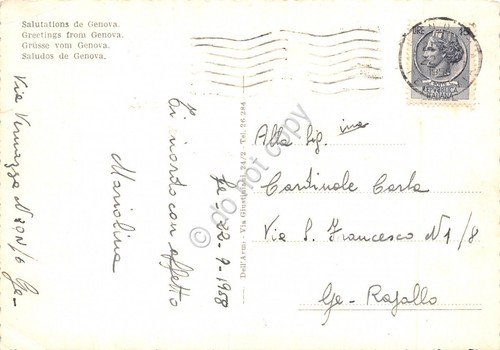 Salutations de Genova.
Greetings from Genova.
Grüsse vom Genova.
Saludos de Genova.
Ge - 22-9-1958
Ti ricordo con affetto
Mariolina
Via Vernazza N 29A/6 Ge-
Dell'Armi - Via Giustiniani, 21/2 - Tel. 26.284
LIRE 15
Alla Sig.ina
Cardinale Carla
Via S. Francesco N 1/8
Ge - Rapallo
do not copy